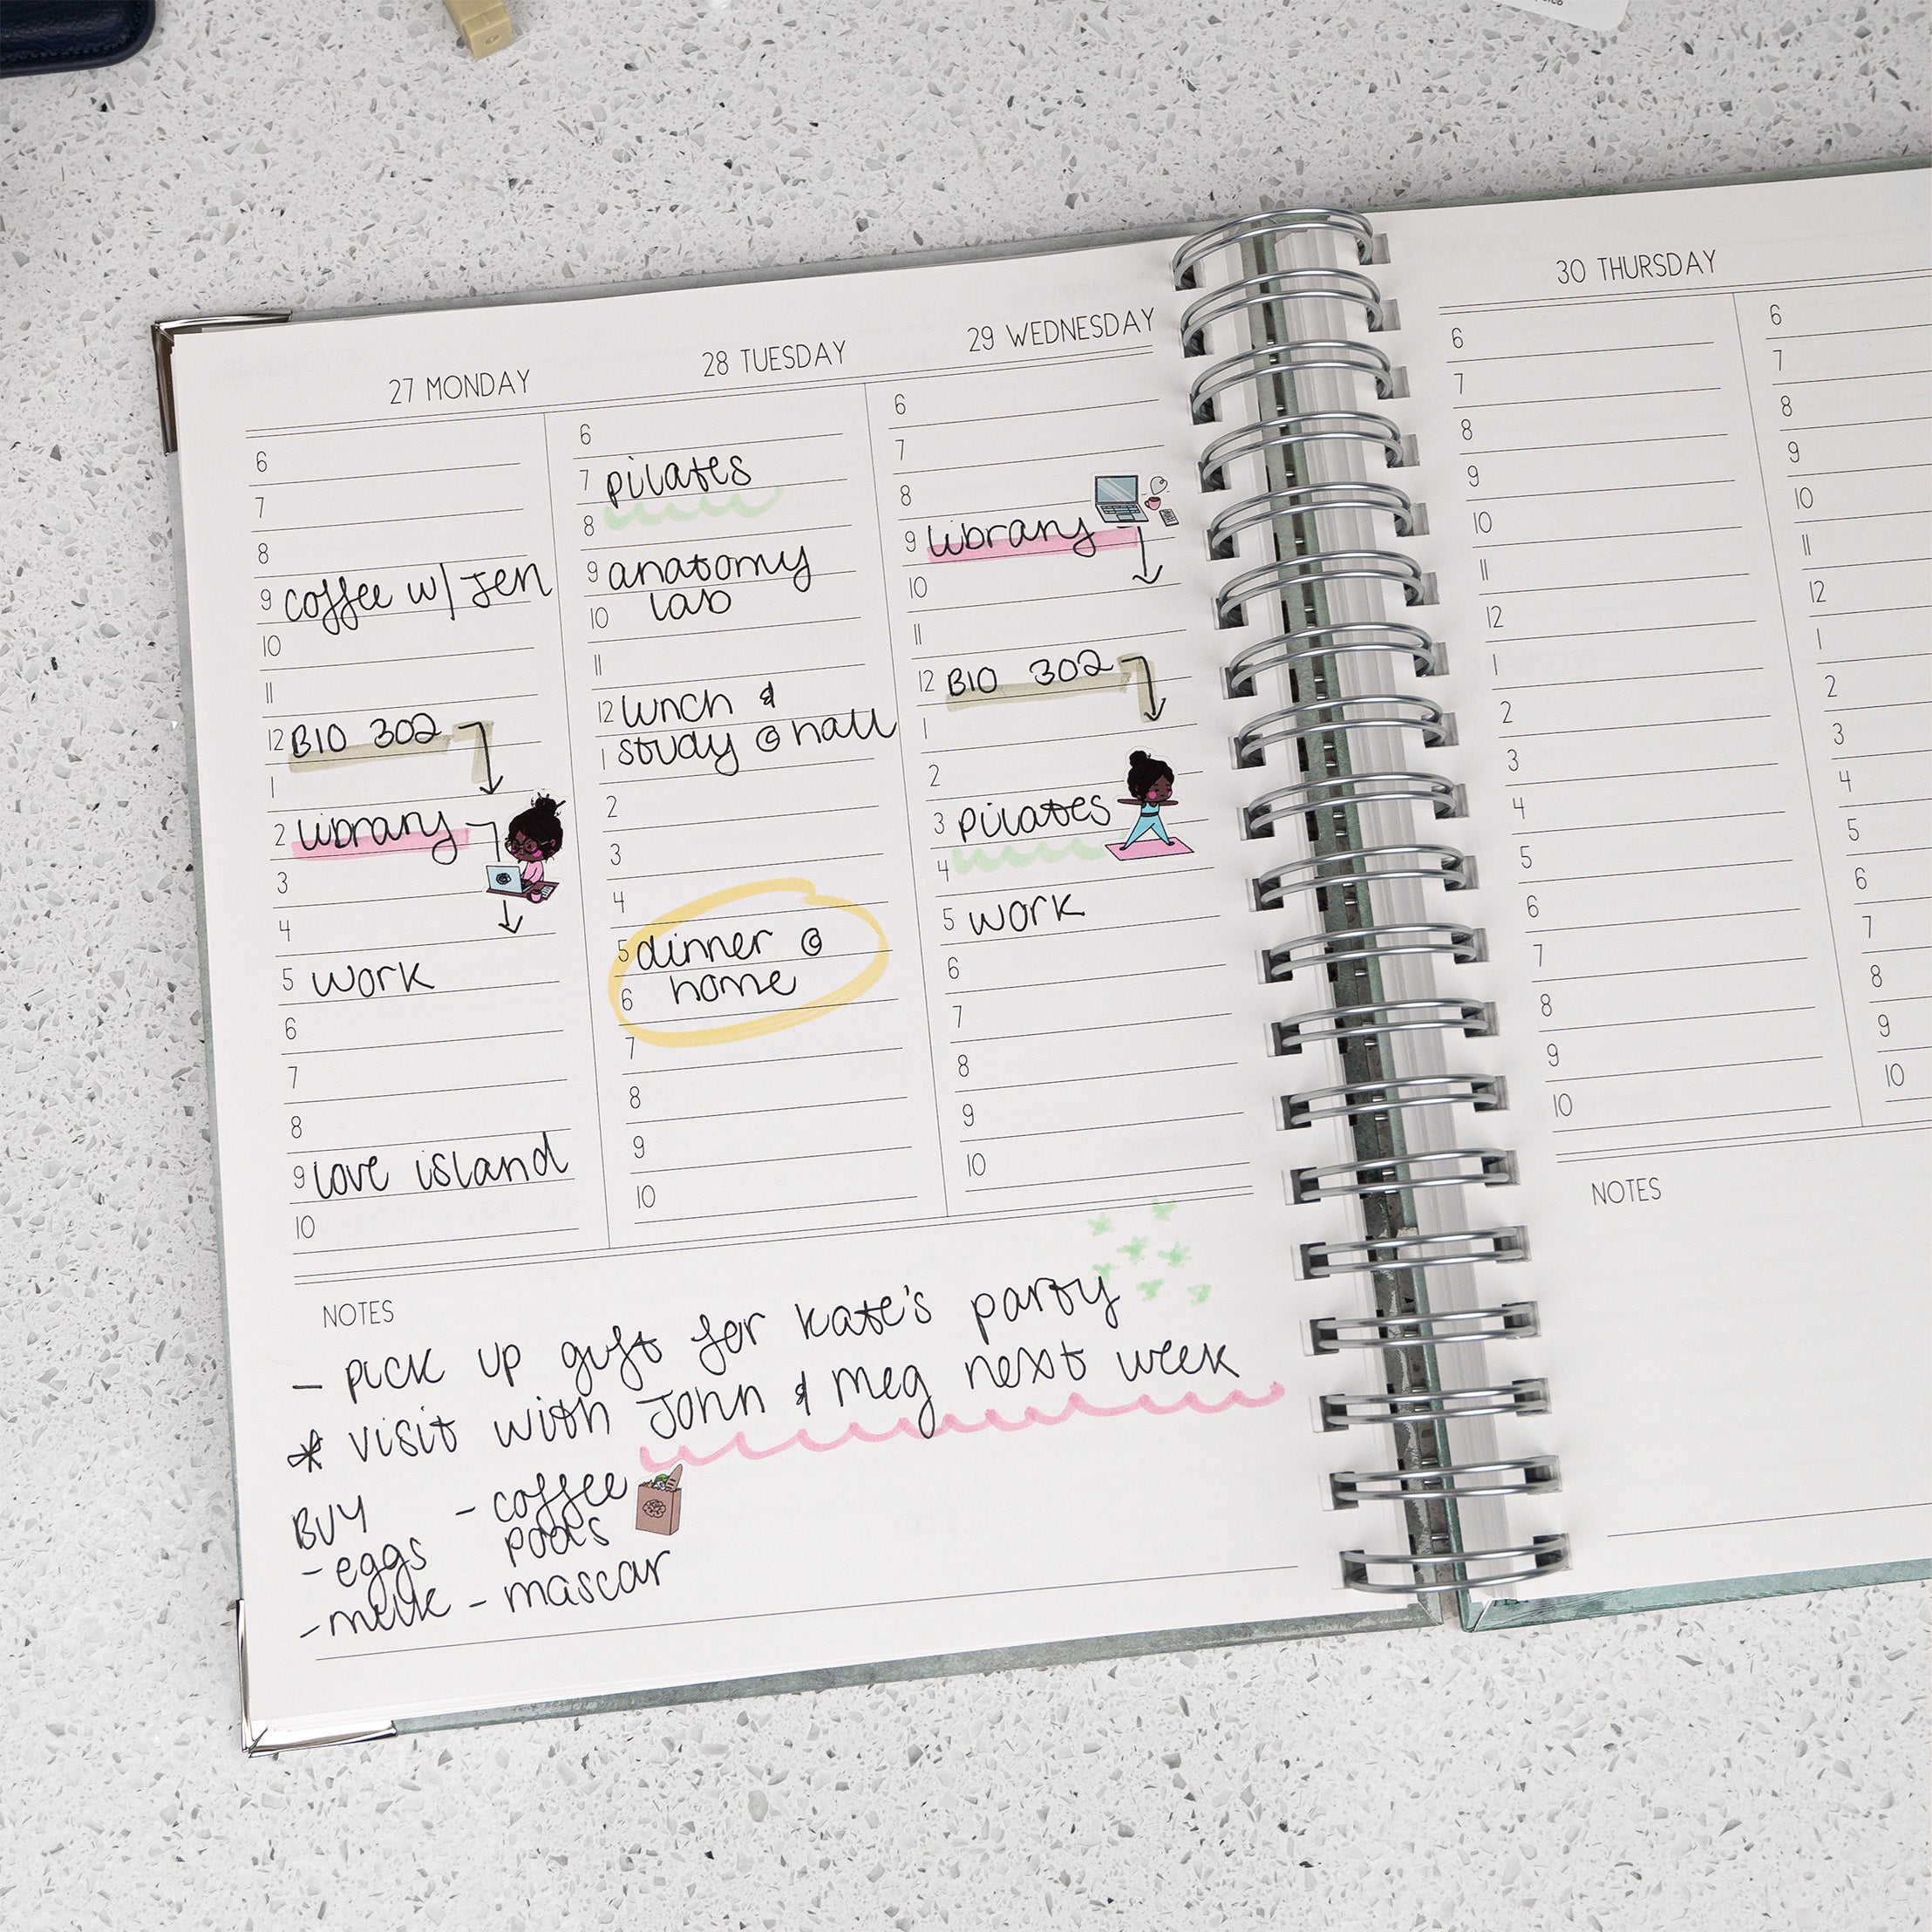 27 MONDAY
6
7
8
9 coffee w/ Jen
10
11
12 BIO 302
1
2 library
3
4
5 work
6
7
8
9 love island
10
28 TUESDAY
6
7 pilates
8
9 anatomy
10 lab
11
12 lunch &
1 study @ hall
2
3
4
5 dinner @
6 home
7
8
9
10
29 WEDNESDAY
6
7
8
9 library
10
11
12 BIO 302
1
2
3 pilates
4
5 work
6
7
8
9
10
NOTES
- pick up gift for kate's party
* visit with John & Meg next week
BUY
- eggs
- milk
- coffee
pods
- mascar
30 THURSDAY
6
7
8
9
10
11
12
1
2
3
4
5
6
7
8
9
10
6
7
8
9
10
11
12
1
2
3
4
5
6
7
8
9
10
NOTES